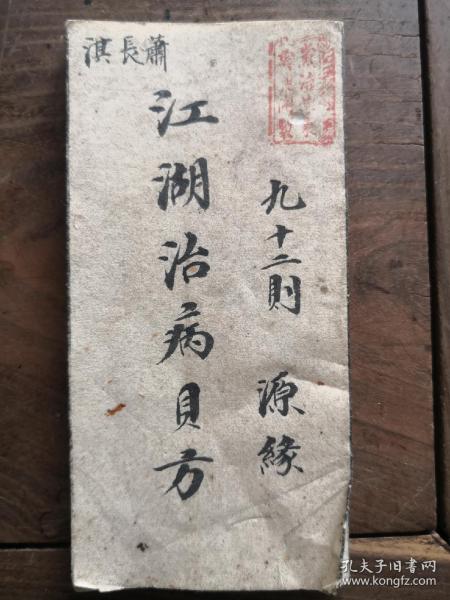 蕭長淇
九十二則 源緣
江湖治病貝方
孔夫子旧书网
www.kongfz.com